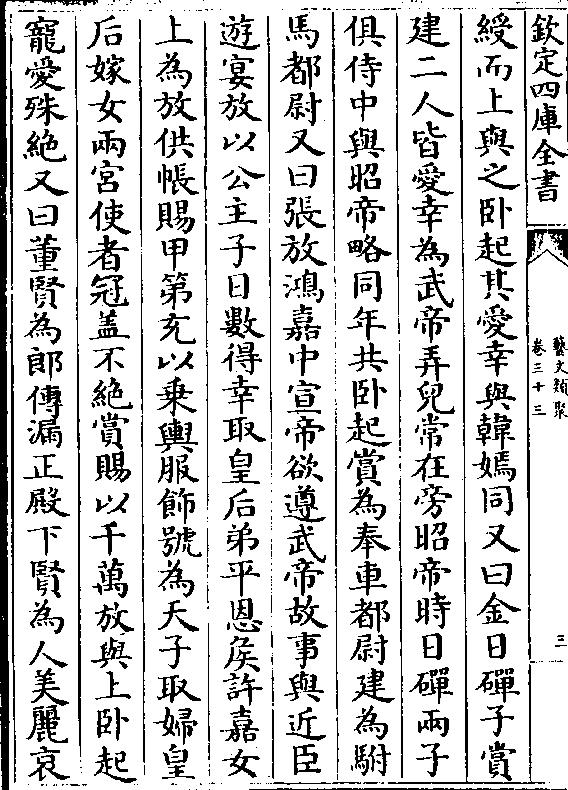 欽定四庫全書
藝文類聚
卷三十三
三
綬而上與之卧起其愛幸與韓嫣同又曰金日磾子賞
建二人皆愛幸為武帝弄兒常在旁昭帝時日磾兩子
俱侍中與昭帝略同年共卧起賞為奉車都尉建為駙
馬都尉又曰張放鴻嘉中宣帝欲遵武帝故事與近臣
遊宴放以公主子日數得幸取皇后弟平恩侯許嘉女
上為放供帳賜甲第充以乗輿服飾號為天子取婦皇
后嫁女兩宮使者冠盖不絶賞賜以千萬放與上卧起
寵愛殊絶又曰董賢為郎傳漏正殿下賢為人美麗哀